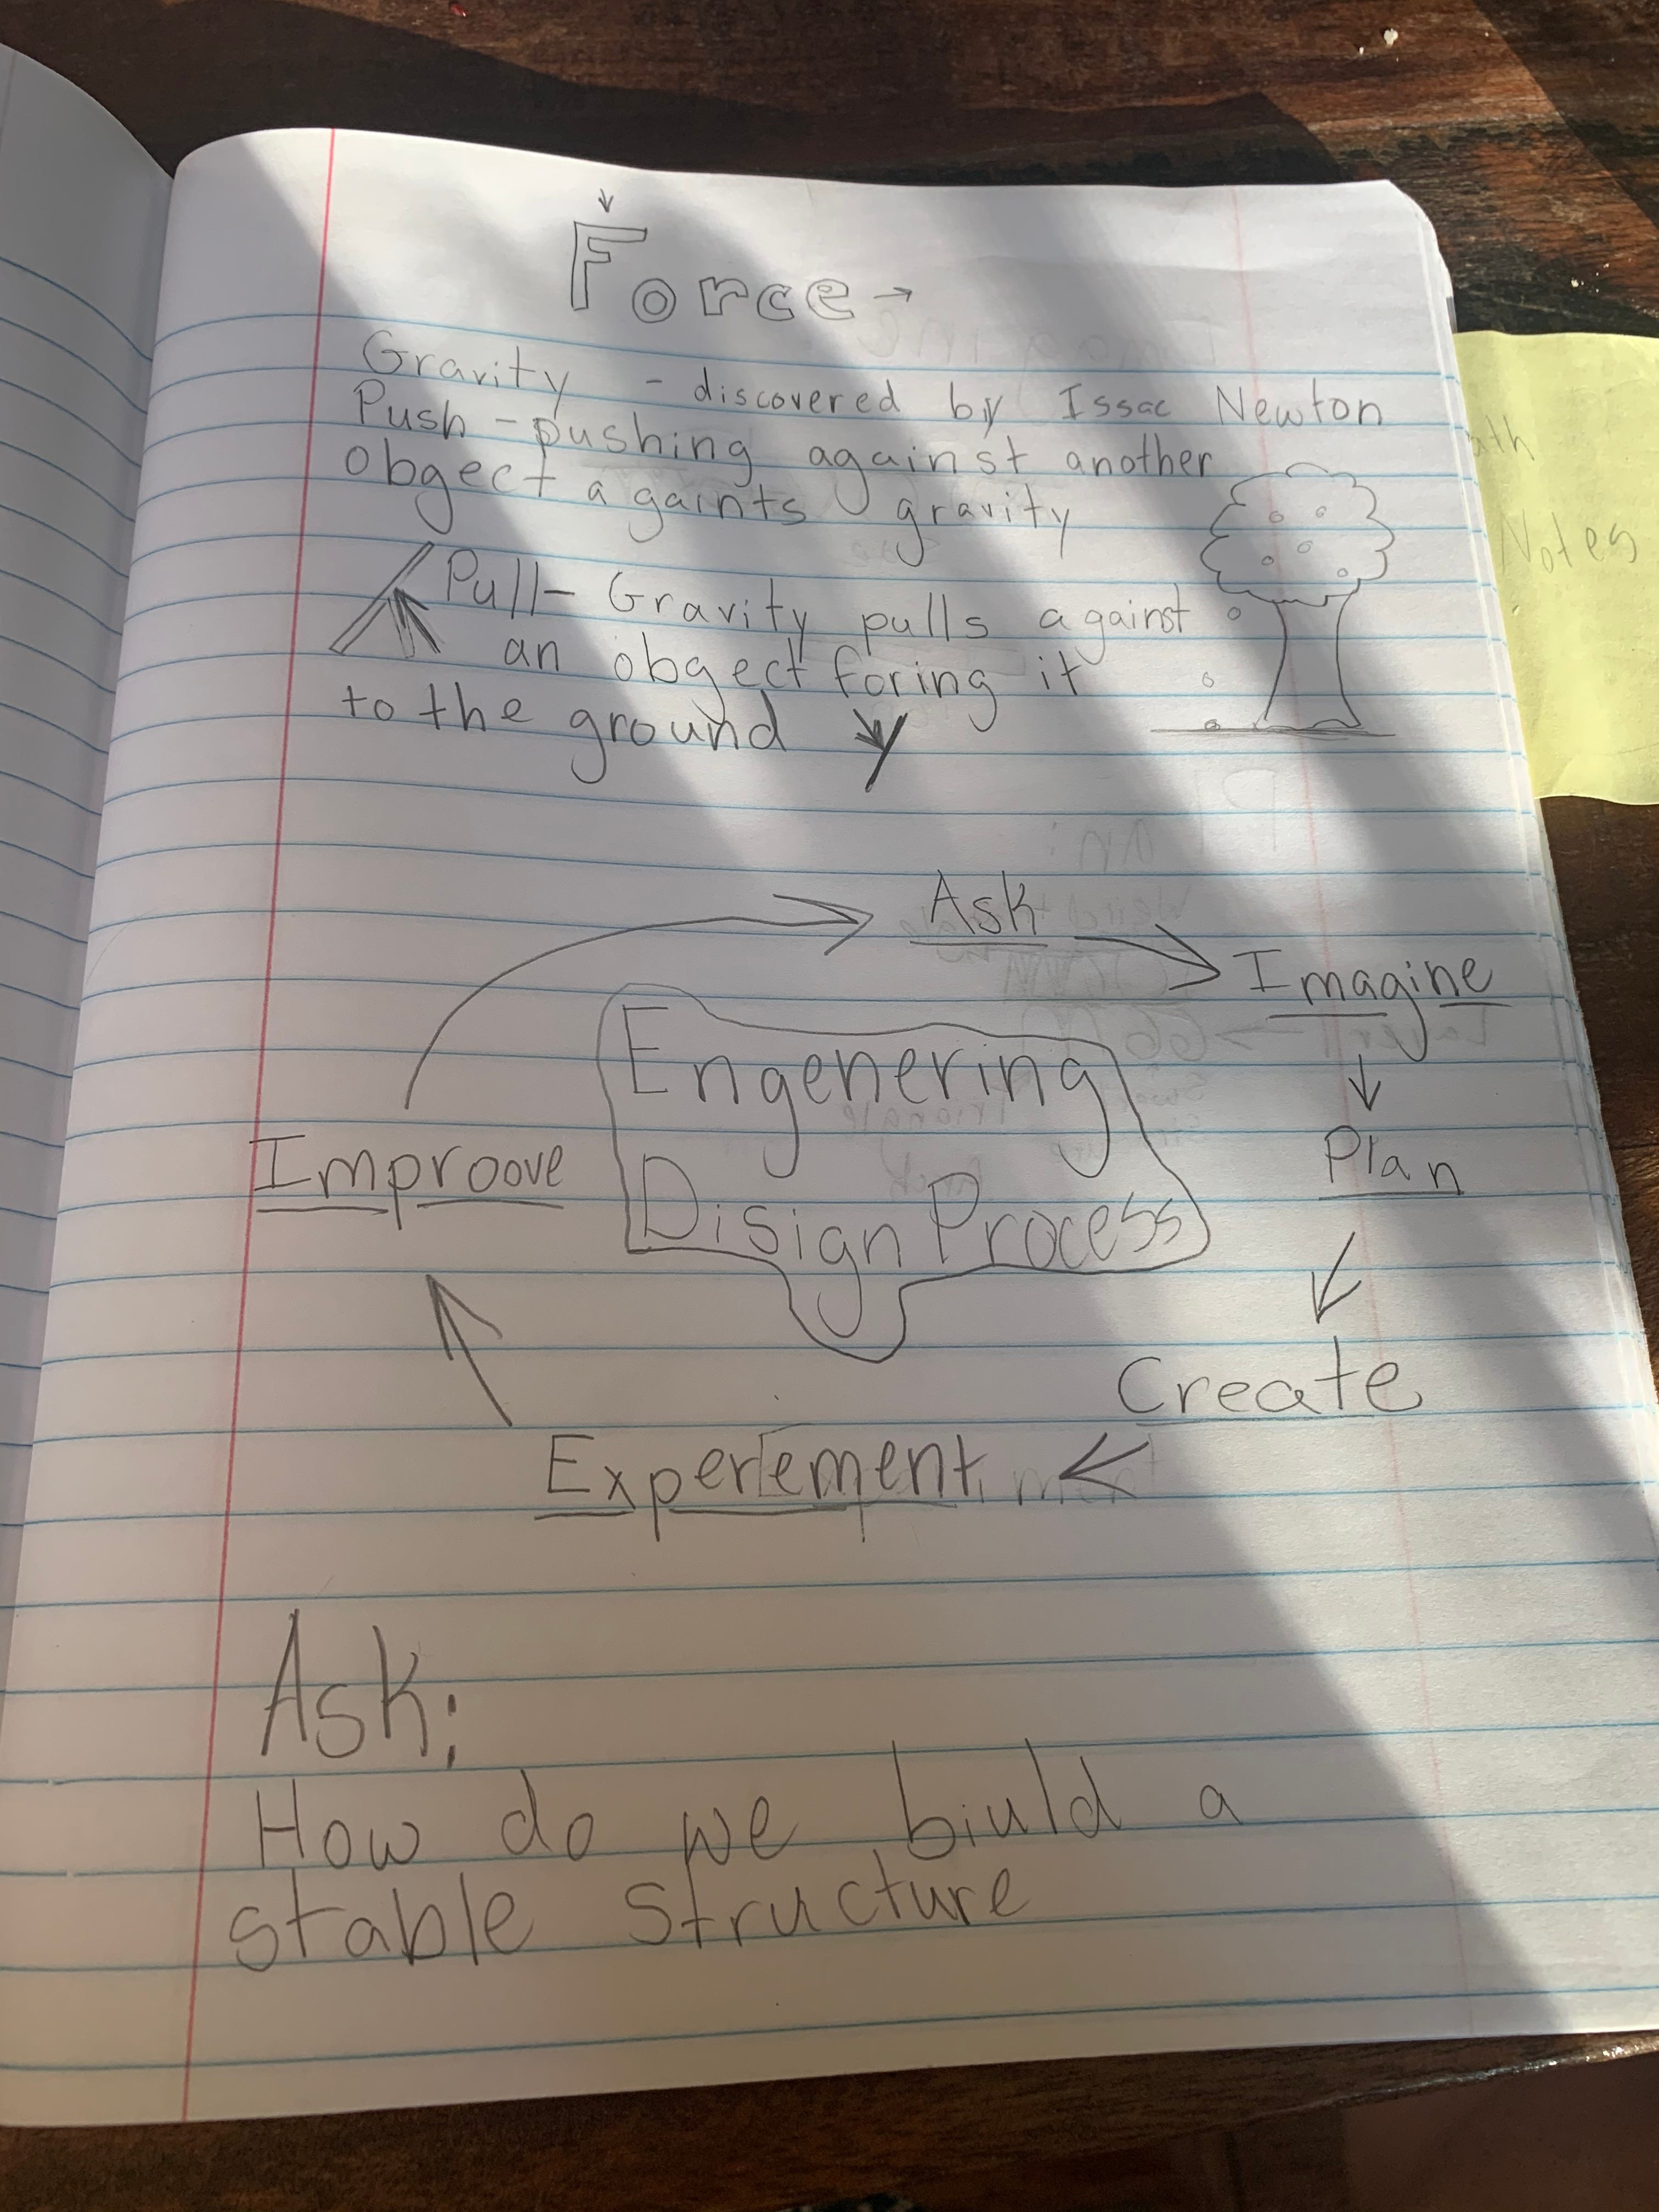 Force
Gravity - discovered by Issac Newton
Push - pushing against another
obgect againts gravity
Pull- Gravity pulls against
an obgect foring it
to the ground
Ask
Imagine
Engenering
Plan
Improove
Disign Process
Create
Experiement
Ask:
How do we biuld a
stable structure
Notes